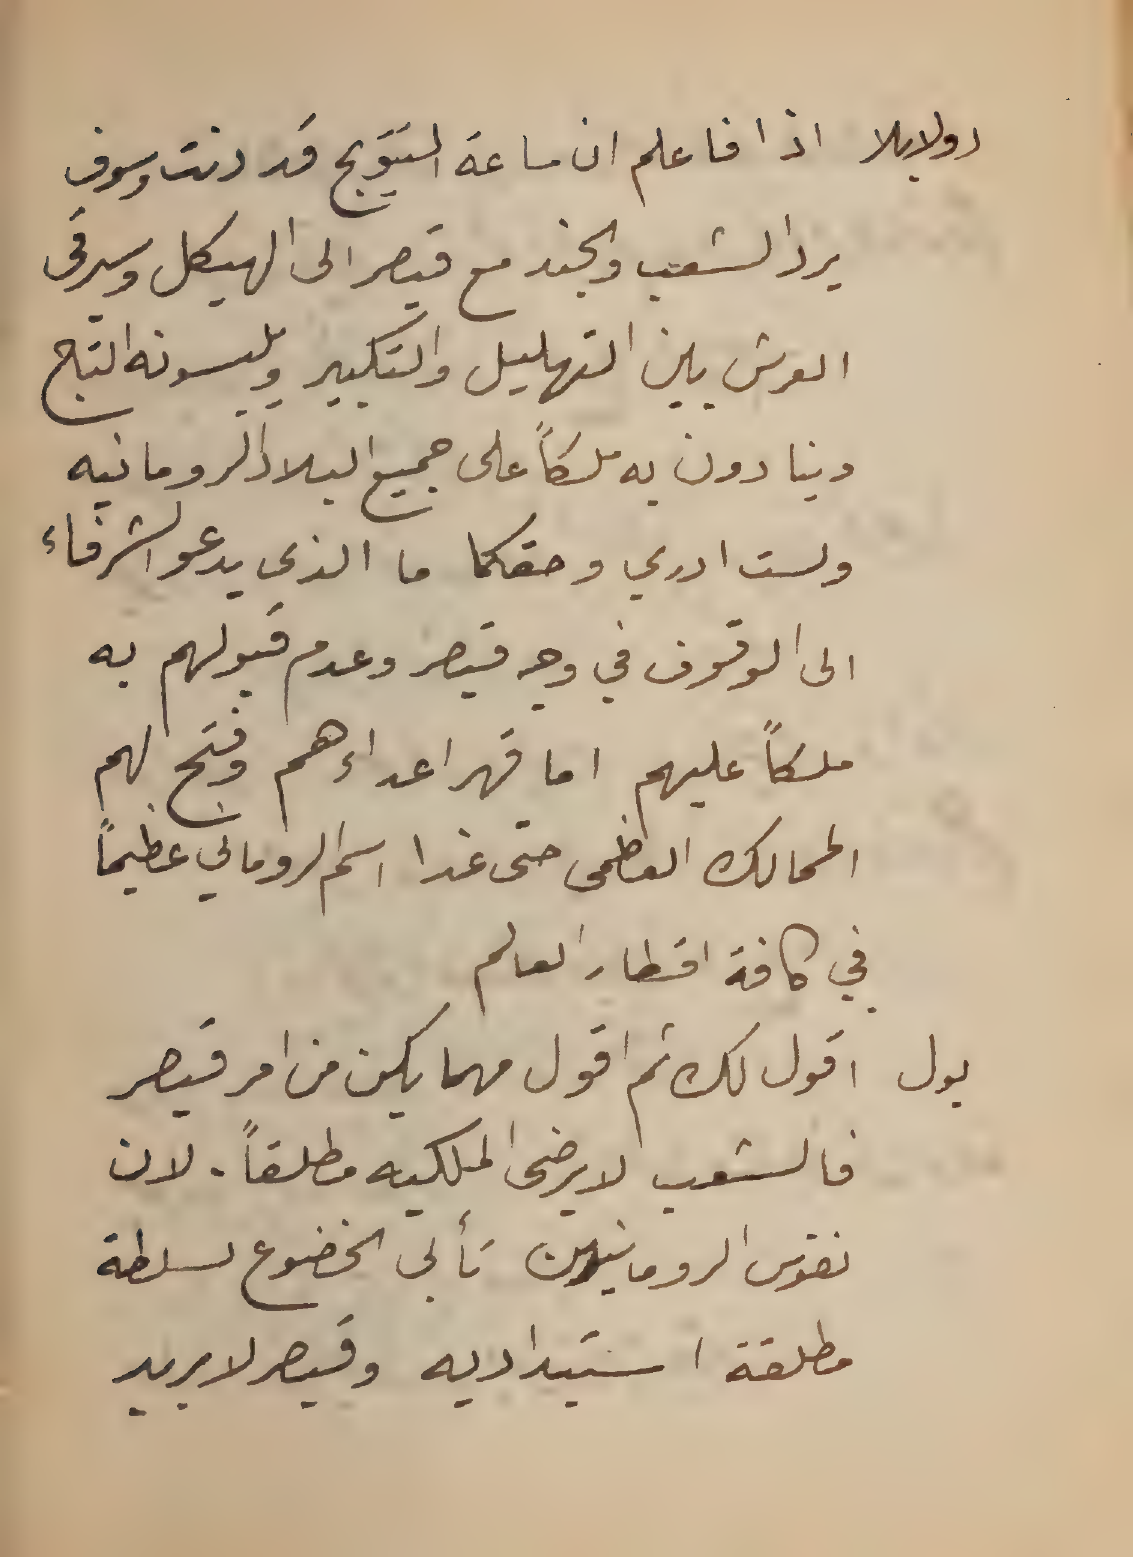 دولابلا اذا فاعلم ان ساعة التتويج قد دنت وسوف
يرد الشعب والجند مع قيصر الى الهيكل وسيرقى
العرش بين التهليل والتكبير ويلبسونه التاج
وينادون به ملكاً على جميع البلاد الرومانيه
ولست ادري وحقكما ما الذي يدعو الشرفاء
الى الوقوف في وجه قيصر وعدم قبولهم به
ملكاً عليهم اما قهر اعداءهم وفتح لهم
الممالك العظمى حتى غدا اسم الروماني عظيماً
في كافة اقطار العالم
بول اقول لك ثم اقول مهما يكن من امر قيصر
فالشعب لا يرضى الملكيه مطلقاً. لان
نفوس الرومانيين تأبى الخضوع لسلطة
مطلقة استبداديه وقيصر لا يريد